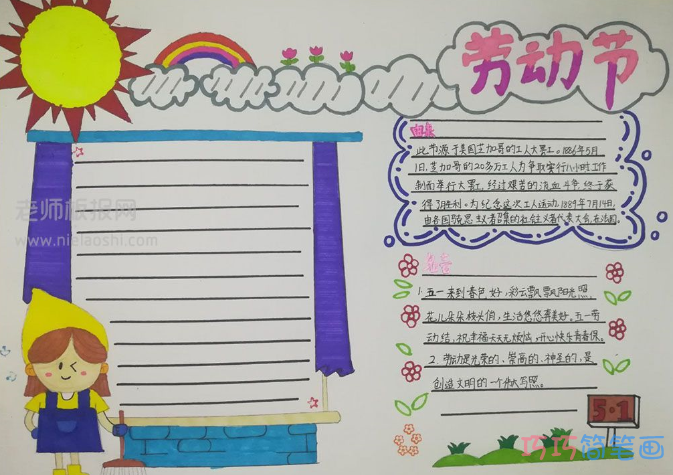 劳动节
由来
此节源于美国芝加哥的工人大罢工。1886年5月
1日,芝加哥的20多万工人为争取实行八小时工作
制而举行大罢工,经过艰苦的流血斗争,终于获
得了胜利。为纪念这次工人运动,1889年7月14日,
由各国马克思主义者召集的社会主义者代表大会,在法国。
老师板报网
www.nielaoshi.com
1.五一来到春色好,彩云飘飘阳光照,
花儿朵朵枝头俏,生活悠悠真美好。五一劳
动结,祝幸福天天无烦恼,开心快乐青春保。
2.劳动是光荣的、崇高的、神圣的,是
创造文明的一个伟大写照。
5·1
巧巧简笔画